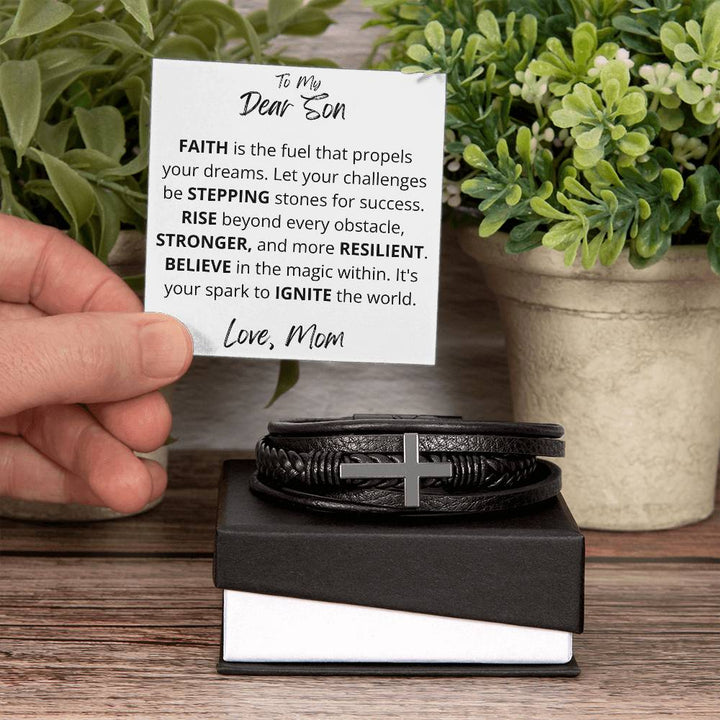 To My
Dear Son
FAITH is the fuel that propels
your dreams. Let your challenges
be STEPPING stones for success.
RISE beyond every obstacle,
STRONGER, and more RESILIENT.
BELIEVE in the magic within. It's
your spark to IGNITE the world.
Love, Mom